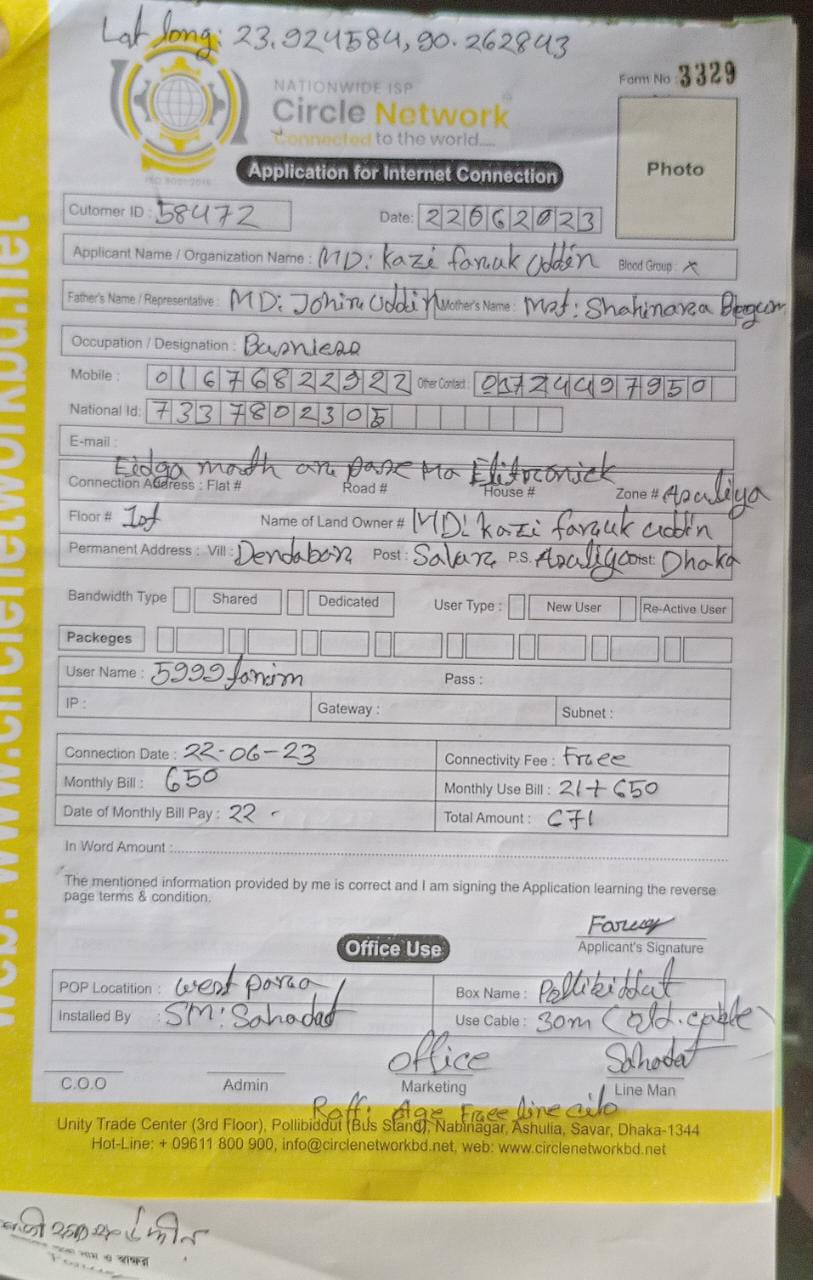 Lat long: 23.924584, 90.262843
NATIONWIDE ISP
Circle Network
Connected to the world....
ISO 9001:2015
Form No 3329
Application for Internet Connection
Photo
Cutomer ID : 58472 Date: 22062023
Applicant Name / Organization Name : MD: Kazi faruk Uddin Blood Group : x
Father's Name / Representative : MD: Johir Uddin Mother's Name : Mst: Shahinara Begum
Occupation / Designation : Busniess
Mobile : 01676822922 Other Contact : 01724497950
National Id: 7337802305
E-mail :
Eidga math are pase Ma Elitronick
Connection Address : Flat # Road # House # Zone # Asuliya
Floor # 1st Name of Land Owner # MD: Kazi faruk uddin
Permanent Address : Vill : Dendabor Post : Savar P.S. Asuliya Dist: Dhaka
Bandwidth Type Shared Dedicated User Type : New User Re-Active User
Packeges
User Name : 5999fahim Pass :
IP : Gateway : Subnet :
Connection Date : 22-06-23 Connectivity Fee : Free
Monthly Bill : 650 Monthly Use Bill : 21+650
Date of Monthly Bill Pay : 22 - Total Amount : 671
In Word Amount :
The mentioned information provided by me is correct and I am signing the Application learning the reverse
page terms & condition.
Faruq
Applicant's Signature
Office Use
POP Locatition : west para Box Name : Pollibiddut
Installed By : SM: Sahadat Use Cable : 30m (old.cable)
office Sahodat
C.O.O Admin Marketing Line Man
Age Free line cilo
Unity Trade Center (3rd Floor), Pollibiddut (Bus Stand), Nabinagar, Ashulia, Savar, Dhaka-1344
Hot-Line: + 09611 800 900, info@circlenetworkbd.net, web: www.circlenetworkbd.net
web: www.circlenetworkbd.net
নাম ও স্বাক্ষর